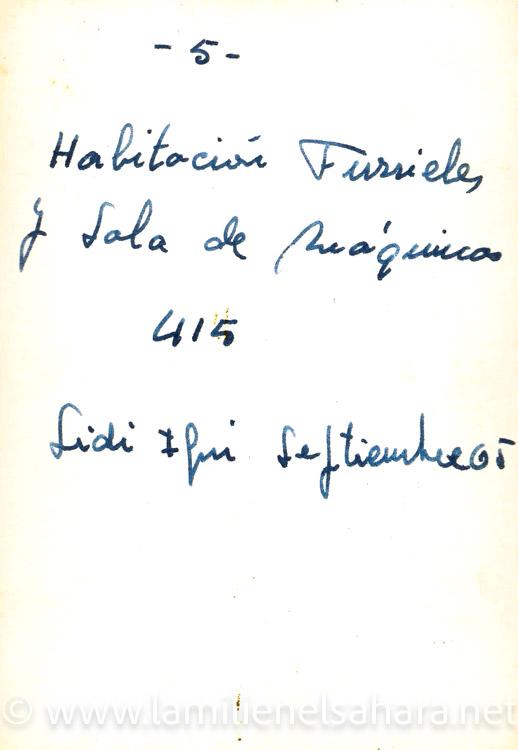 - 5 -
Habitación Furrieles
y Sala de Máquinas
415
Sidi Ifni Septiembre 65
© www.lamilienelsahara.net